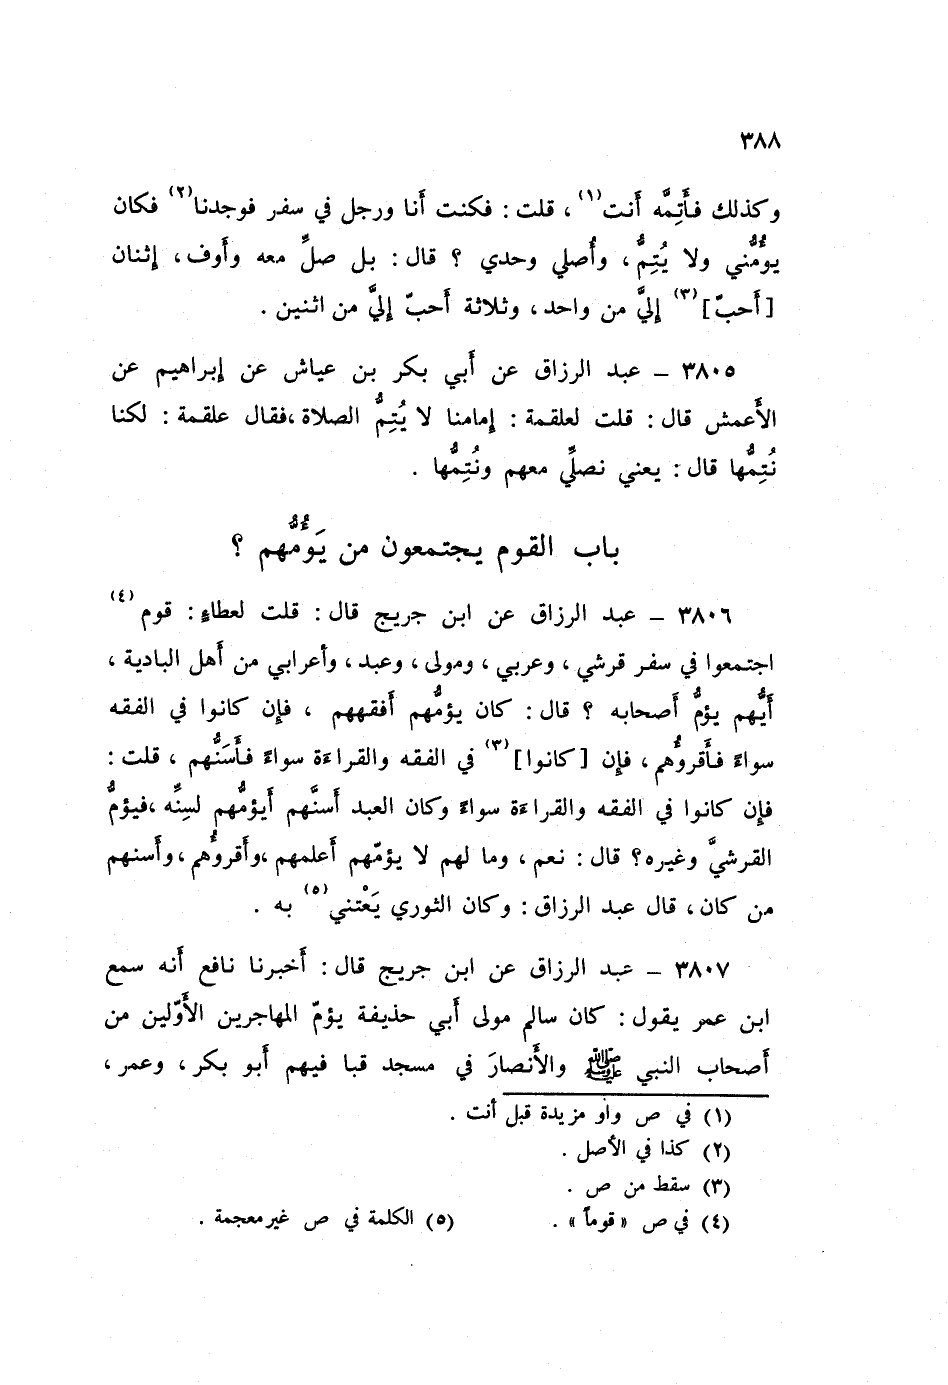 ٣٨٨
وكذلك فأَتِمَّه أَنت(١) ، قلت : فكنت أَنا ورجل في سفر فوجدنا(٢) فكان
يؤُمُّني ولا يُتِمُّ ، وأُصلي وحدي ؟ قال : بل صلِّ معه وأَوف ، إثنان
[أَحبّ](٣) إليَّ من واحد ، وثلاثة أَحبّ إليَّ من اثنين .
٣٨٠٥ – عبد الرزاق عن أَبي بكر بن عياش عن إبراهيم عن
الأَعمش قال : قلت لعلقمة : إمامنا لا يُتِمُّ الصلاة ،فقال علقمة : لكنا
نُتِمُّها قال : يعني نصلِّي معهم ونُتِمُّها .
باب القوم يجتمعون من يَؤُمُّهم ؟
٣٨٠٦ – عبد الرزاق عن ابن جريج قال : قلت لعطاءٍ : قوم(٤)
اجتمعوا في سفر قرشي ، وعربي ، ومولى ، وعبد ، وأعرابي من أَهل البادية ،
أَيُّهم يؤمُّ أَصحابه ؟ قال : كان يؤمُّهم أَفقههم ، فإن كانوا في الفقه
سواءً فأَقروُّهم ، فإن [كانوا](٣) في الفقه والقراءة سواءً فأَسَنُّهم ، قلت :
فإن كانوا في الفقه والقراءة سواءً وكان العبد أَسنَّهم أَيؤمُّهم لسِنِّه ،فيؤمُّ
القرشيَّ وغيره؟ قال : نعم ، وما لهم لا يؤمّهم أَعلمهم ،وأَقروُّهم ،وأَسنهم
من كان ، قال عبد الرزاق : وكان الثوري يَعْتني(٥) به .
٣٨٠٧ – عبد الرزاق عن ابن جريج قال : أَخبرنا نافع أَنه سمع
ابن عمر يقول : كان سالم مولى أَبي حذيفة يؤمّ المهاجرين الأَوّلين من
أَصحاب النبي ﷺ والأَنصارَ في مسجد قبا فيهم أَبو بكر ، وعمر ،
(١) في ص واو مزيدة قبل أنت .
(٢) كذا في الأصل .
(٣) سقط من ص .
(٤) في ص « قوماً » . (٥) الكلمة في ص غير معجمة .